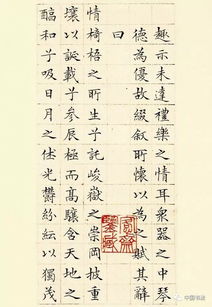 趣亦未達禮樂之情耳衆器之中琴
德為優故綴叙所懷以為之賦其辭
曰
惟椅梧之所生兮託峻嶽之崇岡披重
壤以誕載兮參辰極而高驤含天地之
醇和兮吸日月之休光鬱紛紜以獨茂
中国书法